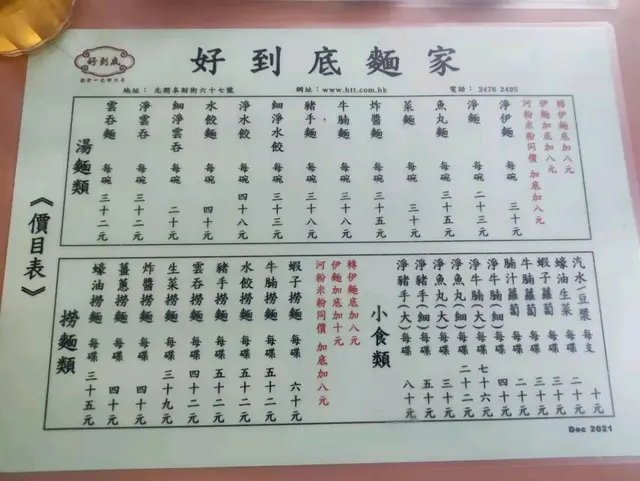 好到底
好到底麵家
地址: 元朗阜財街六十七號
網址:www.htt.com.hk
電話: 2476 2495
《價目表》
湯麵類
雲吞麵 每碗 三十二元
淨雲吞 每碗 三十二元
細淨雲吞 每碗 二十元
水餃麵 每碗 四十元
淨水餃 每碗 四十八元
細淨水餃 每碗 三十三元
豬手麵 每碗 三十八元
牛腩麵 每碗 三十八元
炸醬麵 每碗
菜麵 每碗 三十元
魚丸麵 每碗 三十五元
淨麵 每碗 二十三元
淨伊麵 每碗 三十元
河粉米粉同價 加底加八元
伊麵加底加八元
轉伊麵加八元
撈麵類
蠔油撈麵 每碟 三十五元
薑蔥撈麵 每碟 四十元
炸醬撈麵 每碟 四十元
生菜撈麵 每碟 三十九元
雲吞撈麵 每碟 四十二元
豬手撈麵 每碟 五十二元
水餃撈麵 每碟 五十二元
牛腩撈麵 每碟 五十二元
蝦子撈麵 每碟 六十元
河粉米粉同價 加底加八元
伊麵加底加十元
轉伊麵加底加八元
小食類
淨豬手(大) 每碟 八十元
淨豬手(細) 每碟 五十元
淨魚丸(大) 每碟 三十元
淨魚丸(細) 每碟 二十二元
淨牛腩(大) 每碟 七十六元
淨牛腩(細) 每碟 四十元
腩汁蘿蔔 每碟 二十元
蝦子蘿蔔 每碟 三十元
蠔油生菜 每碟
汽水/豆漿 每支 十元
Dec 2021